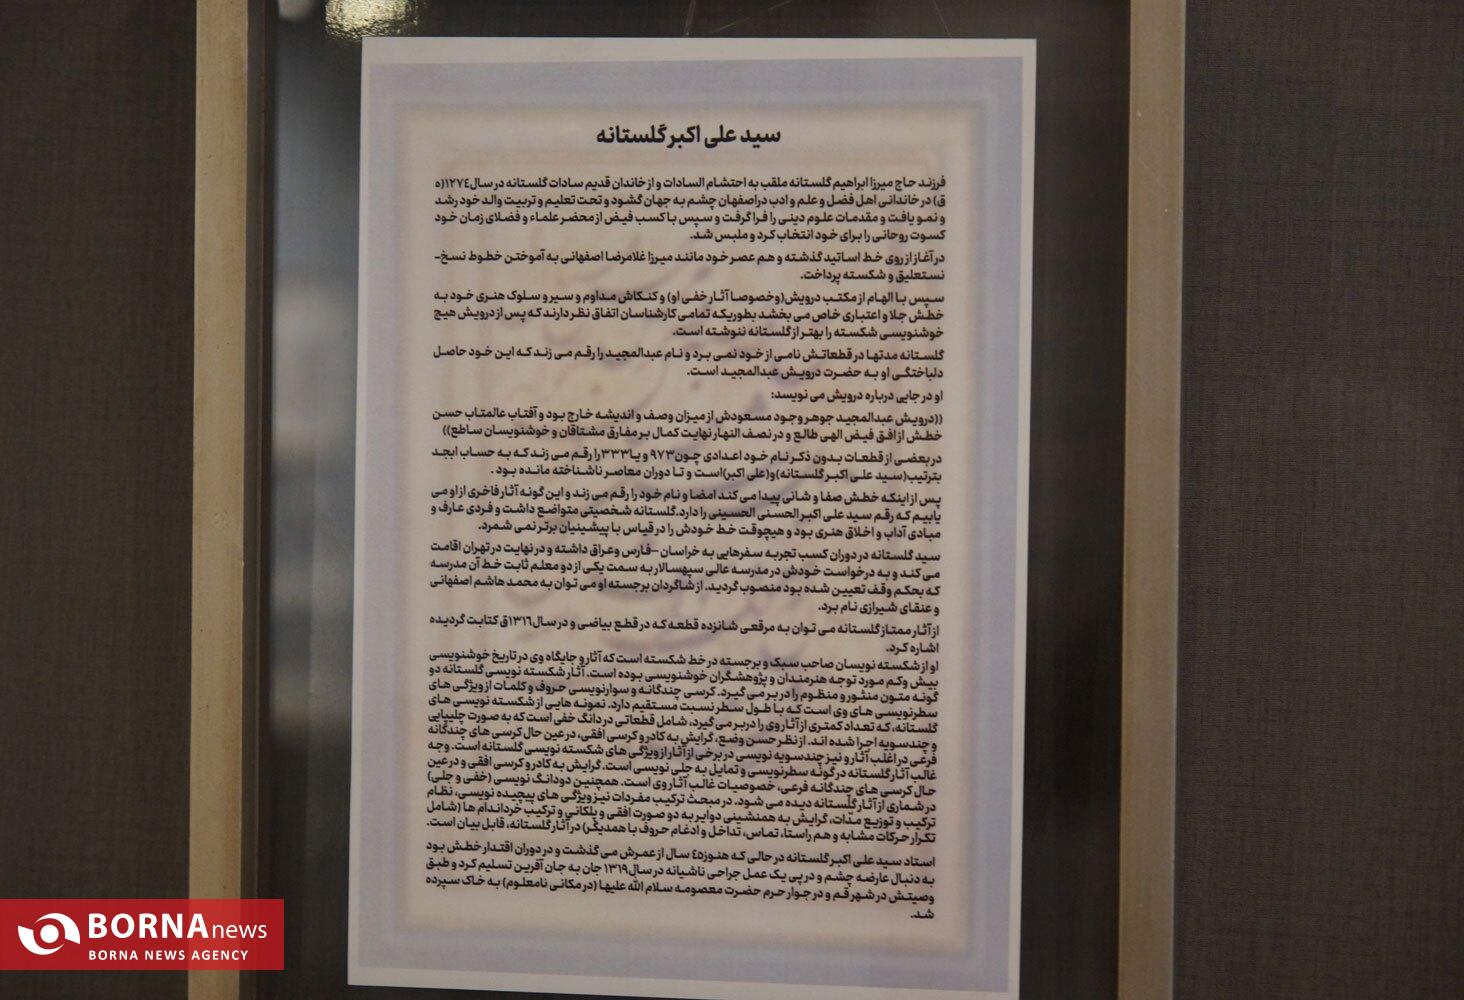 سید علی اکبر گلستانه
فرزند حاج میرزا ابراهیم گلستانه ملقب به احتشام السادات و از خاندان قدیم سادات گلستانه در سال ۱۲۷٤(ه
ق) در خاندانی اهل فضل و علم و ادب دراصفهان چشم به جهان گشود و تحت تعلیم و تربیت والد خود رشد
و نمو یافت و مقدمات علوم دینی را فرا گرفت و سپس با کسب فیض از محضر علماء و فضلای زمان خود
کسوت روحانی را برای خود انتخاب کرد و ملبس شد.
در آغاز از روی خط اساتید گذشته و هم عصر خود مانند میرزا غلامرضا اصفهانی به آموختن خطوط نسخ-
نستعلیق و شکسته پرداخت.
سپس با الهام از مکتب درویش(وخصوصا آثار خفی او) و کنکاش مداوم و سیر و سلوک هنری خود به
خطش جلا و اعتباری خاص می بخشد بطوریکه تمامی کارشناسان اتفاق نظر دارند که پس از درویش هیچ
خوشنویسی شکسته را بهتر از گلستانه ننوشته است.
گلستانه مدتها در قطعاتش نامی از خود نمی برد و نام عبدالمجید را رقم می زند که این خود حاصل
دلباختگی او به حضرت درویش عبدالمجید است.
او در جایی درباره درویش می نویسد:
((درویش عبدالمجید جوهر وجود مسعودش از میزان وصف و اندیشه خارج بود و آفتاب عالمتاب حسن
خطش از افق فیض الهی طالع و در نصف النهار نهایت کمال بر مفارق مشتاقان و خوشنویسان ساطع))
در بعضی از قطعات بدون ذکر نام خود اعدادی چون ۹۷۳ و یا ۳۳۳ را رقم می زند که به حساب ابجد
بترتیب(سید علی اکبر گلستانه)و(علی اکبر)است و تا دوران معاصر ناشناخته مانده بود .
پس از اینکه خطش صفا و شانی پیدا می کند امضا و نام خود را رقم می زند و این گونه آثار فاخری از او می
یابیم که رقم سید علی اکبر الحسنی الحسینی را دارد.گلستانه شخصیتی متواضع داشت و فردی عارف و
مبادی آداب و اخلاق هنری بود و هیچوقت خط خودش را در قیاس با پیشینیان برتر نمی شمرد.
سید گلستانه در دوران کسب تجربه سفرهایی به خراسان -فارس وعراق داشته و در نهایت در تهران اقامت
می کند و به درخواست خودش در مدرسه عالی سپهسالار به سمت یکی از دو معلم ثابت خط آن مدرسه
که بحکم وقف تعیین شده بود منصوب گردید. از شاگردان برجسته او می توان به محمد هاشم اصفهانی
و عنقای شیرازی نام برد.
از آثار ممتاز گلستانه می توان به مرقعی شانزده قطعه که در قطع بیاضی و در سال ۱۳۱٦ق کتابت گردیده
اشاره کرد.
او از شکسته نویسان صاحب سبک و برجسته در خط شکسته است که آثار و جایگاه وی در تاریخ خوشنویسی
بیش وکم مورد توجه هنرمندان و پژوهشگران خوشنویسی بوده است. آثار شکسته نویسی گلستانه دو
گونه متون منثور و منظوم را در بر می گیرد. کرسی چندگانه و سوارنویسی حروف و کلمات از ویژگی های
سطرنویسی های وی است که با طول سطر نسبت مستقیم دارد. نمونه هایی از شکسته نویسی های
گلستانه، که تعداد کمتری از آثار وی را دربر می گیرد، شامل قطعاتی در دانگ خفی است که به صورت چلیپایی
و چندسویه اجرا شده اند. از نظر حسن وضع، گرایش به کادر و کرسی افقی، در عین حال کرسی های چندگانه
فرعی در اغلب آثار و نیز چندسویه نویسی در برخی از آثار از ویژگی های شکسته نویسی گلستانه است. وجه
غالب آثار گلستانه در گونه سطرنویسی و تمایل به جلی نویسی است. گرایش به کادر و کرسی افقی و در عین
حال کرسی های چندگانه فرعی، خصوصیات غالب آثار وی است. همچنین دودانگ نویسی (خفی و جلی)
در شماری از آثار گلستانه دیده می شود. در مبحث ترکیب مفردات نیز ویژگی های پیچیده نویسی، نظام
ترکیب و توزیع مدّات، گرایش به همنشینی دوایر به دو صورت افقی و پلکانی و ترکیب خرداندام ها (شامل
تکرار حرکات مشابه و هم راستا، تماس، تداخل و ادغام حروف با همدیگر) در آثار گلستانه، قابل بیان است.
استاد سید علی اکبر گلستانه در حالی که هنوز ٤٥ سال از عمرش می گذشت و در دوران اقتدار خطش بود
به دنبال عارضه چشم و در پی یک عمل جراحی ناشیانه در سال ۱۳۱۹ جان به جان آفرین تسلیم کرد و طبق
وصیتش در شهر قم و در جوار حرم حضرت معصومه سلام الله علیها (در مکانی نامعلوم) به خاک سپرده
شد.
BORNA news
BORNA NEWS AGENCY